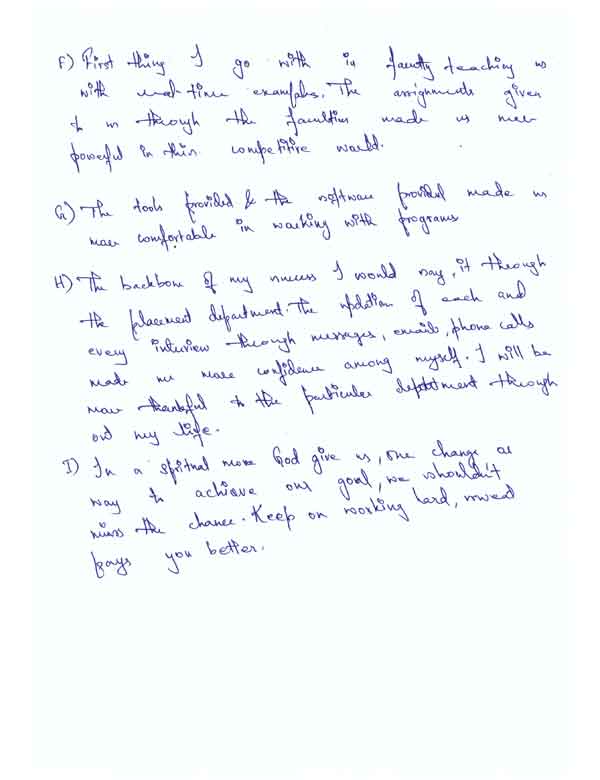 F) First thing I go with is faculty teaching us
with real-time examples. The assignments given
to us through the faculties made us more
powerful in this competitive world.
G) The tools provided & the software provided made us
more comfortable in working with programs
H) The backbone of my success I would say, it through
the placement department. The updation of each and
every interview through messages, emails, phone calls
made me more confidence among myself. I will be
more thankful to the particular department through
out my life.
I) In a spritual more God give us, one change or
way to achieve our goal, we shouldn't
miss the chance. Keep on working hard, sweat
pays you better.